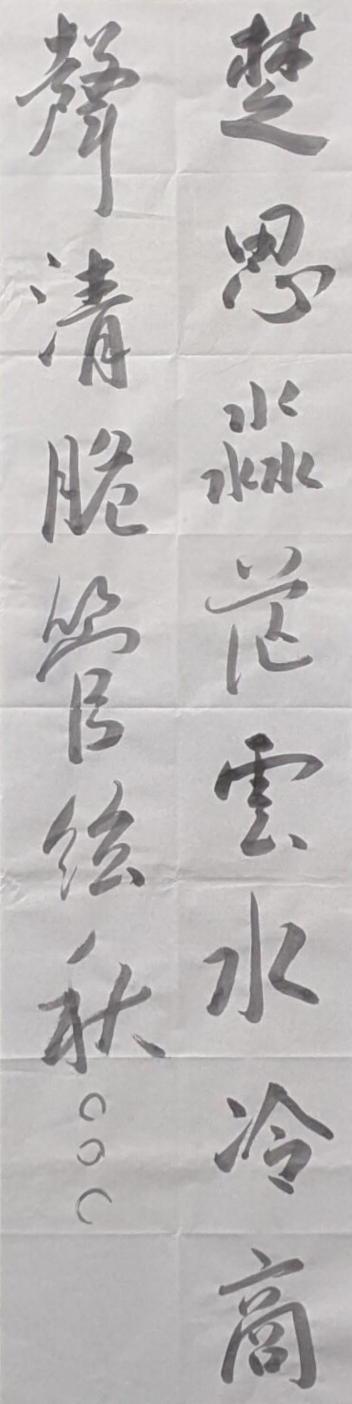 楚思淼茫雲水冷商
聲清脆管絃秋○○○